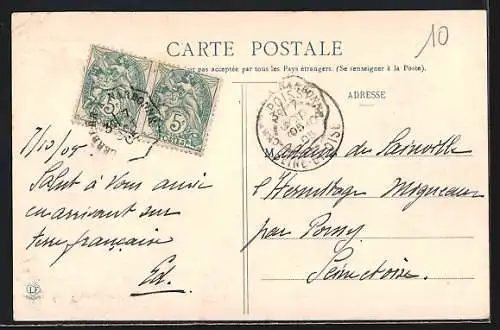 10
CARTE POSTALE
pas acceptée par tous les Pays étrangers. (Se renseigner à la Poste).
ADRESSE
5c 5c
7/10/05
Salut à vous aussi
en arrivant sur
terre française
Ed.
Madame de Sainville
l'Hermitage Migneaux
par Poissy
Seine et oise.
POISSY
SEINE-ET-OISE
LF